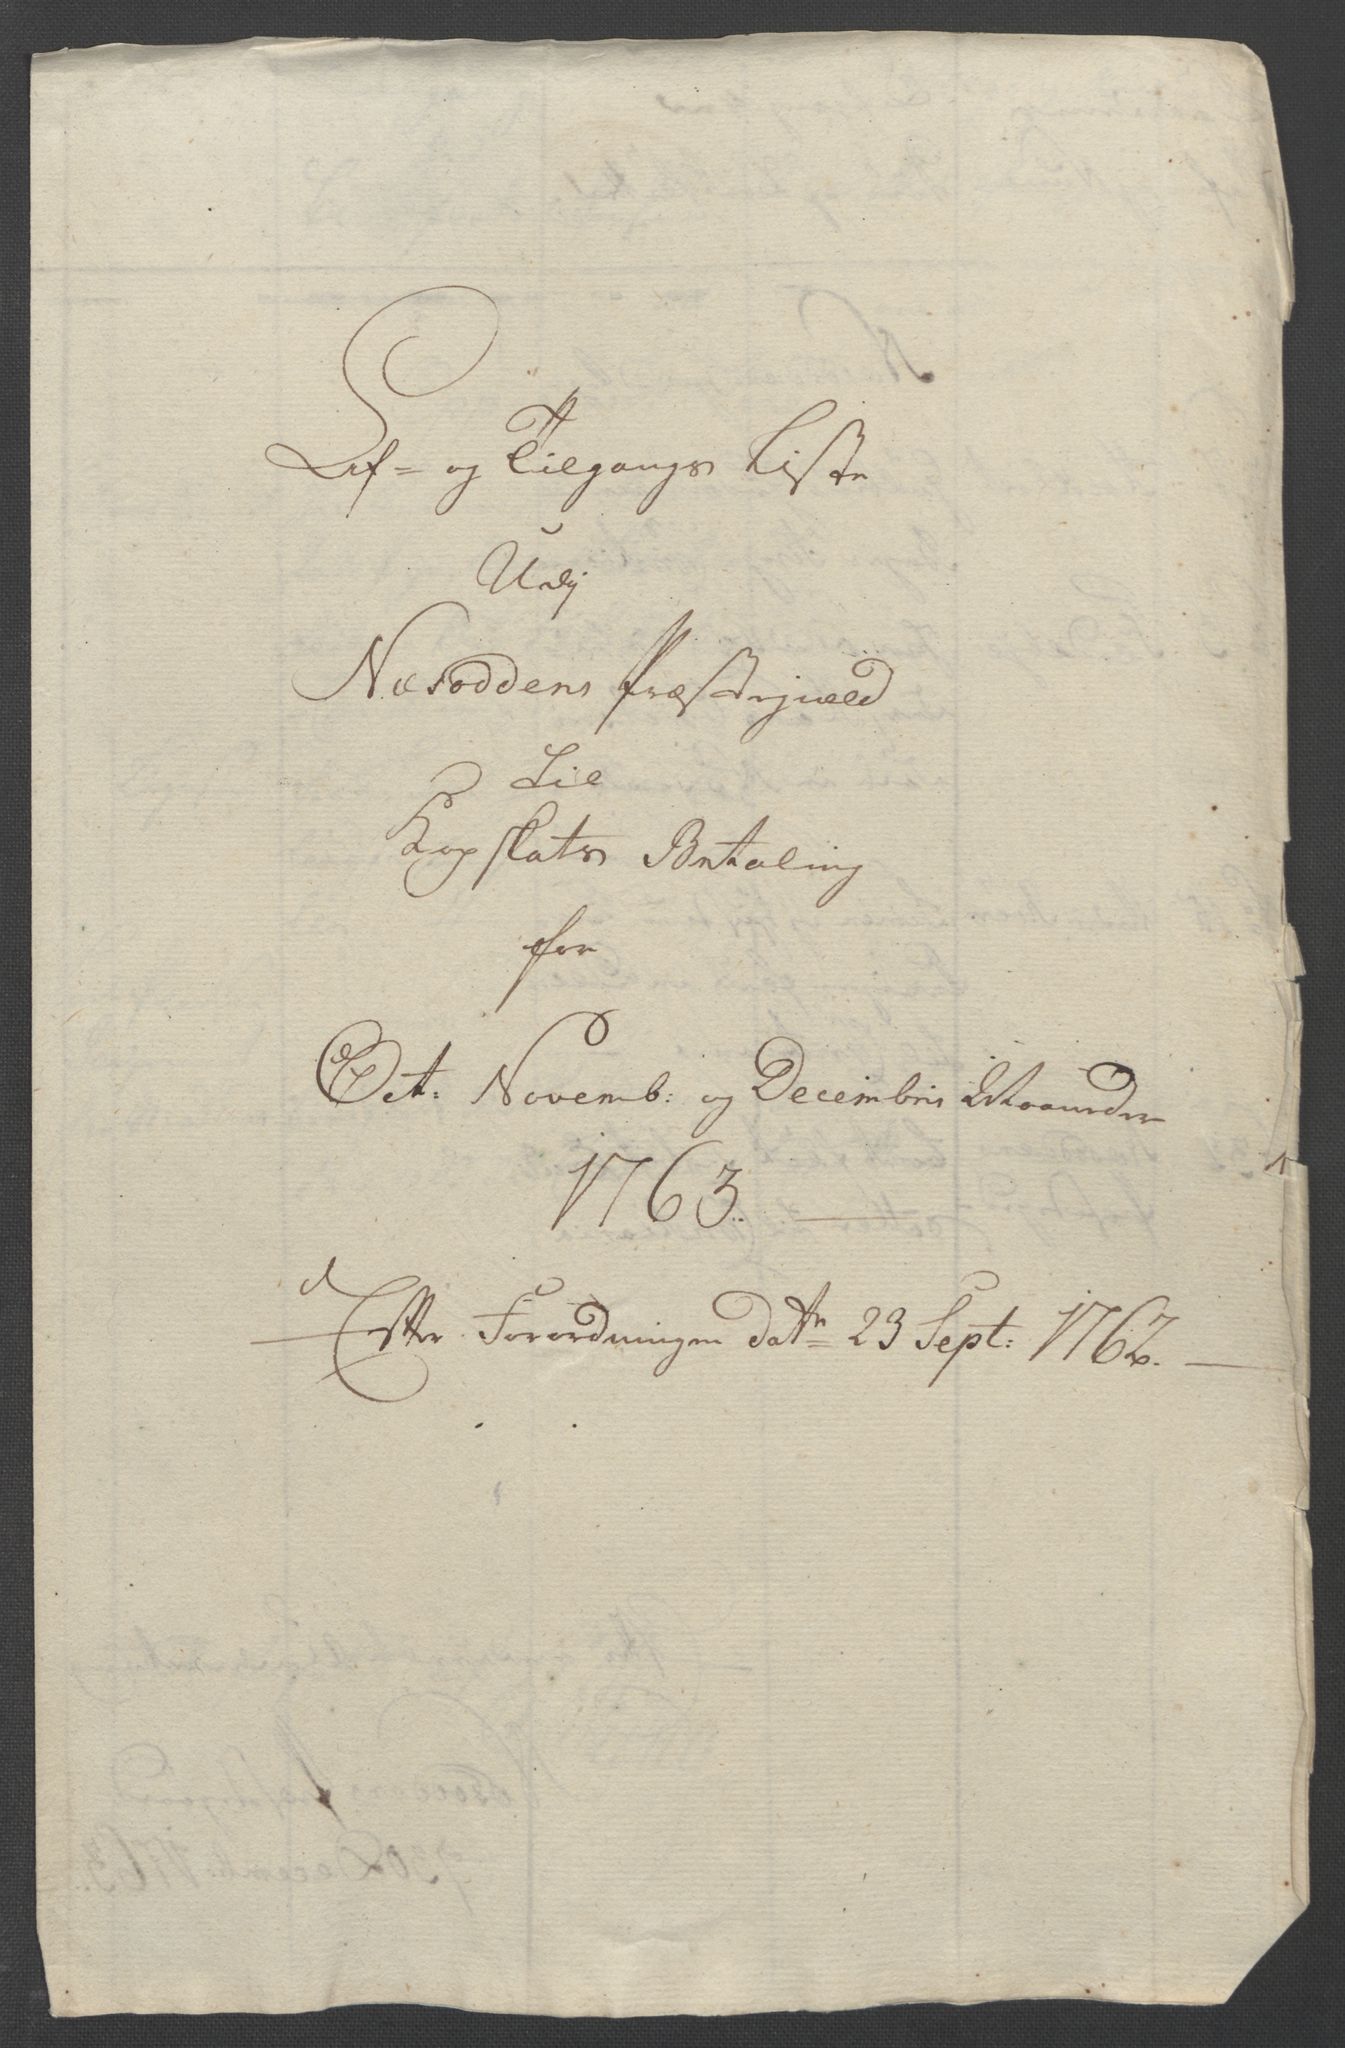 Af- og Tilgangs Liste
Udj
Næsoddens Præstegield
Til
Kopskats Betaling
for
Oct: Novemb: og Decembris Maaneder
1763.
Efter Forordningen dat: 23 Sept: 1762.